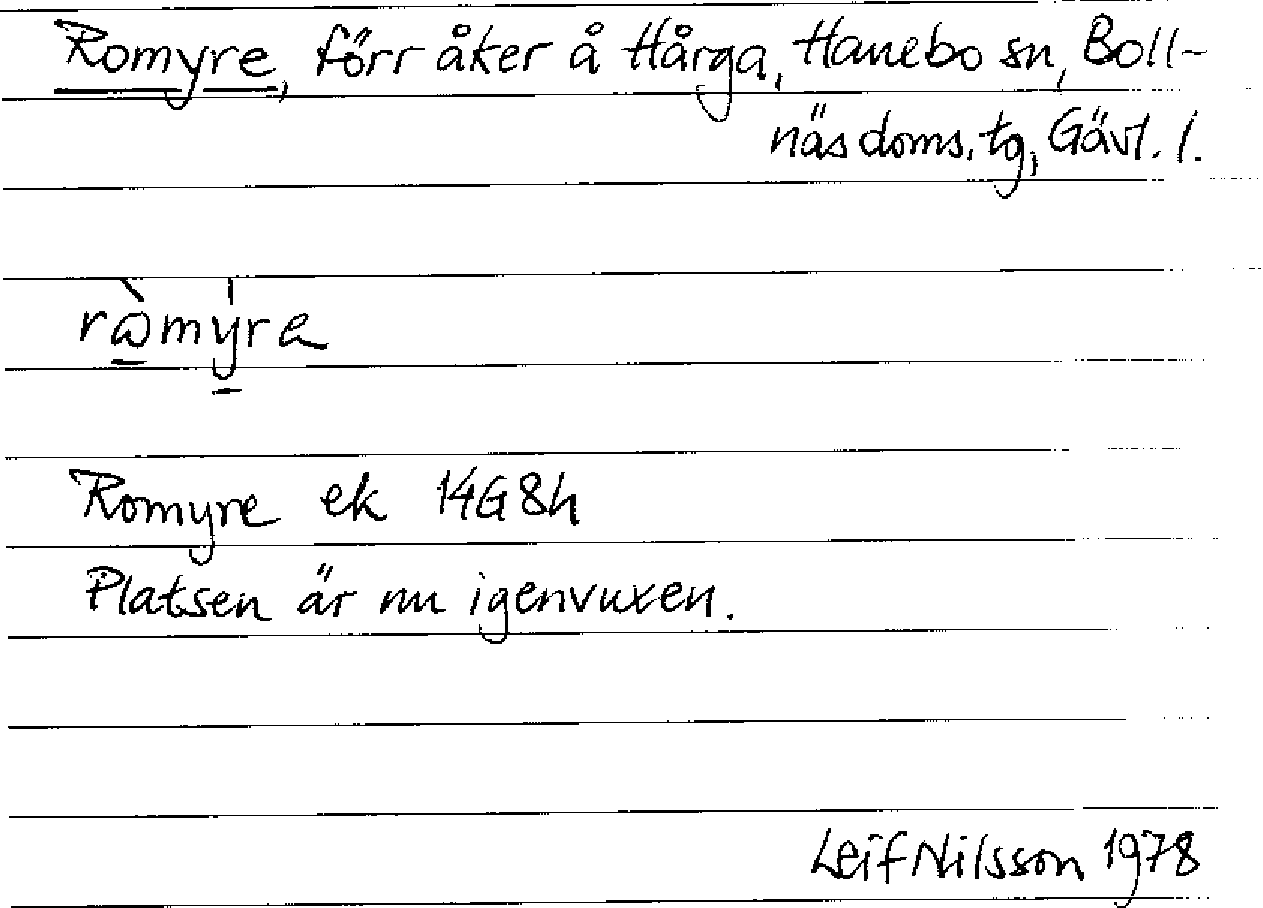 Romyre, förr åker å Hårga, Hanebo sn, Boll-
näs doms. tg, Gävl. l.
Romyre ek 14G8h
Platsen är nu igenvuxen.
Leif Nilsson 1978